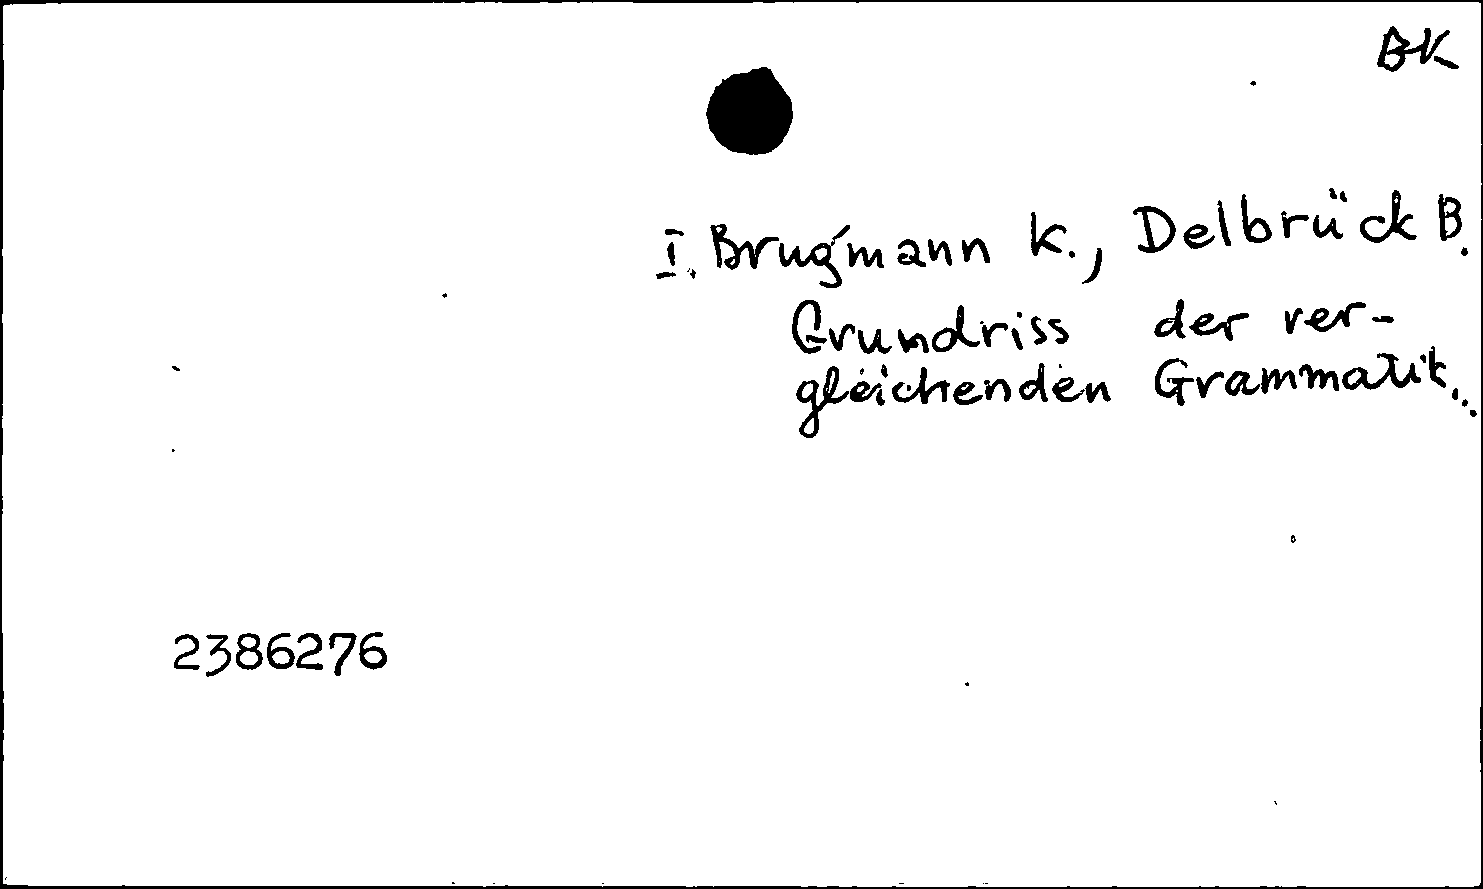 BK
I. Brugmann K., Delbrück B.
Grundriss der ver-
gleichenden Grammatik...
2386276